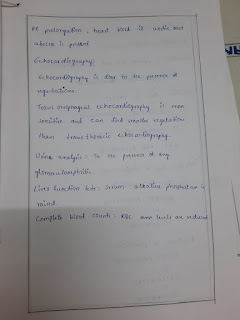 PR prolongation, heart block if aortic root
abscess is present
Echocardiography:
Echocardiography is done to see presence of
vegetations
Trans esophageal echocardiography is more
sensitive and can find smaller vegetation
than transthoracic echocardiography.
Urine analysis: To see presence of any
glomerulonephritis
Liver function tests: serum alkaline phosphatase is
raised.
Complete blood counts: RBC levels are reduced